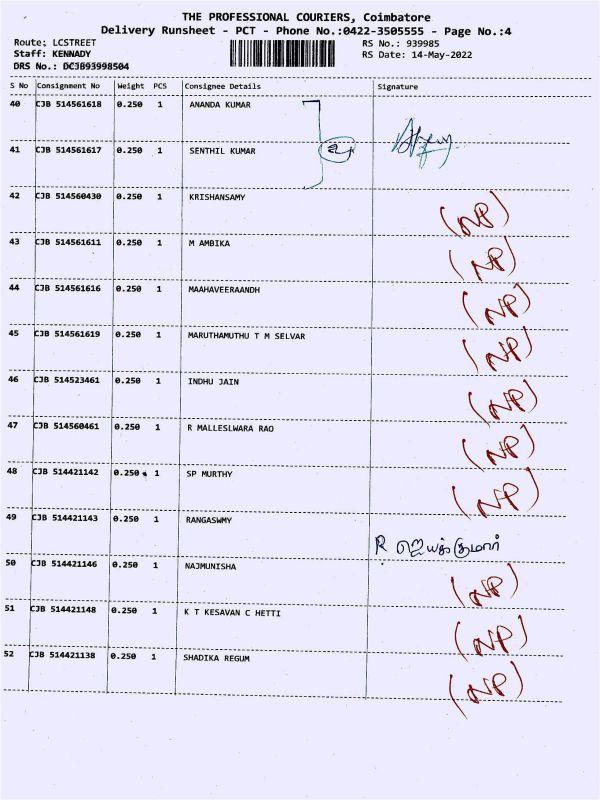 THE PROFESSIONAL COURIERS, Coimbatore
Delivery Runsheet - PCT - Phone No.:0422-3505555 - Page No.:4
Route: LCSTREET RS No.: 939985
Staff: KENNADY RS Date: 14-May-2022
DRS No.: DCJB93998504
S No Consignment No Weight PCS Consignee Details Signature
40 CJB 514561618 0.250 1 ANANDA KUMAR
41 CJB 514561617 0.250 1 SENTHIL KUMAR
42 CJB 514560430 0.250 1 KRISHANSAMY (NP)
43 CJB 514561611 0.250 1 M AMBIKA (NP)
44 CJB 514561616 0.250 1 MAAHAVEERAANDH (NP)
45 CJB 514561619 0.250 1 MARUTHAMUTHU T M SELVAR (NP)
46 CJB 514523461 0.250 1 INDHU JAIN (NP)
47 CJB 514560461 0.250 1 R MALLESLWARA RAO (NP)
48 CJB 514421142 0.250 1 SP MURTHY (NP)
49 CJB 514421143 0.250 1 RANGASWMY R ஜெயக்குமார்
50 CJB 514421146 0.250 1 NAJMUNISHA (NP)
51 CJB 514421148 0.250 1 K T KESAVAN C HETTI (NP)
52 CJB 514421138 0.250 1 SHADIKA REGUM (NP)